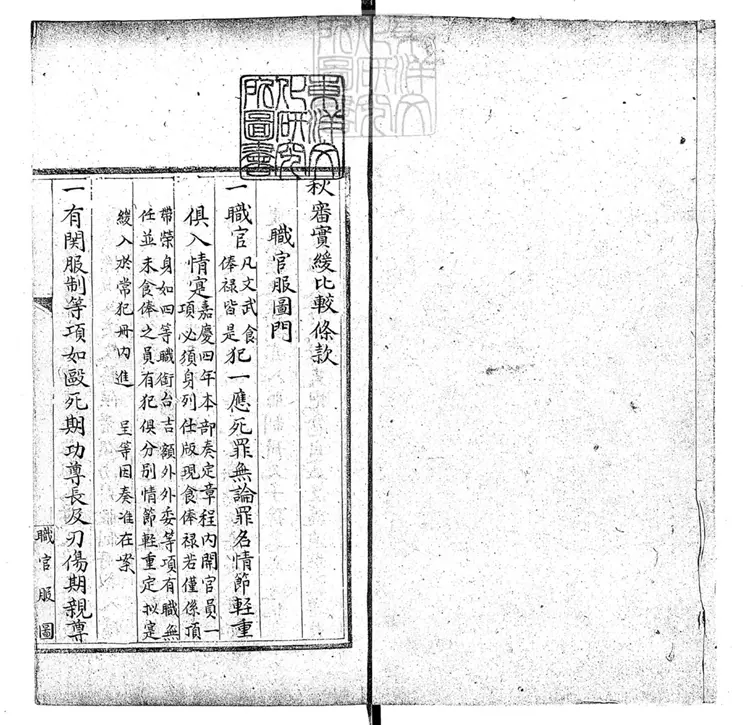 東洋文
化研究
所圖書
秋審實緩比較條款
職官服圖門
一職官凡文武食俸祿皆是犯一應死罪無論罪名情節軽重
俱入情寔嘉慶四年本部奏定章程内開官員一
項必須身列仕版現食俸祿若僅係頂
帶榮身如四等職銜台吉額外外委等項有職無
任並未食俸之員有犯俱分別情節軽重定拟寔
緩入於常犯冊内進　呈等因奏准在案
一有関服制等項如毆死期功尊長及刃傷期親尊
職官服圖